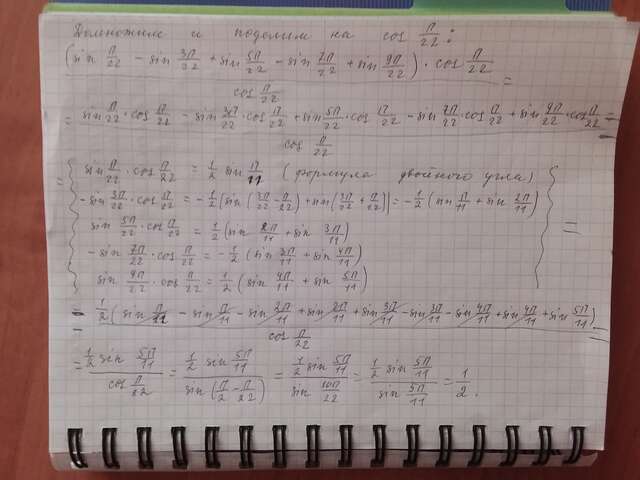 Домножим и поделим на cos π/22 :
(sin π/22 − sin 3π/22 + sin 5π/22 − sin 7π/22 + sin 9π/22) · cos π/22
cos π/22 =
= sin π/22 · cos π/22 − sin 3π/22 · cos π/22 + sin 5π/22 · cos π/22 − sin 7π/22 · cos π/22 + sin 9π/22 · cos π/22 =
cos π/22
= { sin π/22 · cos π/22 = 1/2 sin π/11 (формула двойного угла)
− sin 3π/22 · cos π/22 = −1/2 (sin (3π/22 − π/22) + sin (3π/22 + π/22)) = −1/2 (sin π/11 + sin 2π/11)
sin 5π/22 · cos π/22 = 1/2 (sin 2π/11 + sin 3π/11)
− sin 7π/22 · cos π/22 = −1/2 (sin 3π/11 + sin 4π/11)
sin 9π/22 · cos π/22 = 1/2 (sin 4π/11 + sin 5π/11) } =
= 1/2 (sin π/11 − sin π/11 − sin 2π/11 + sin 2π/11 + sin 3π/11 − sin 3π/11 − sin 4π/11 + sin 4π/11 + sin 5π/11) =
cos π/22
= 1/2 sin 5π/11 / cos π/22 = 1/2 sin 5π/11 / sin (π/2 − π/22) = 1/2 sin 5π/11 / sin 10π/22 = 1/2 sin 5π/11 / sin 5π/11 = 1/2 .